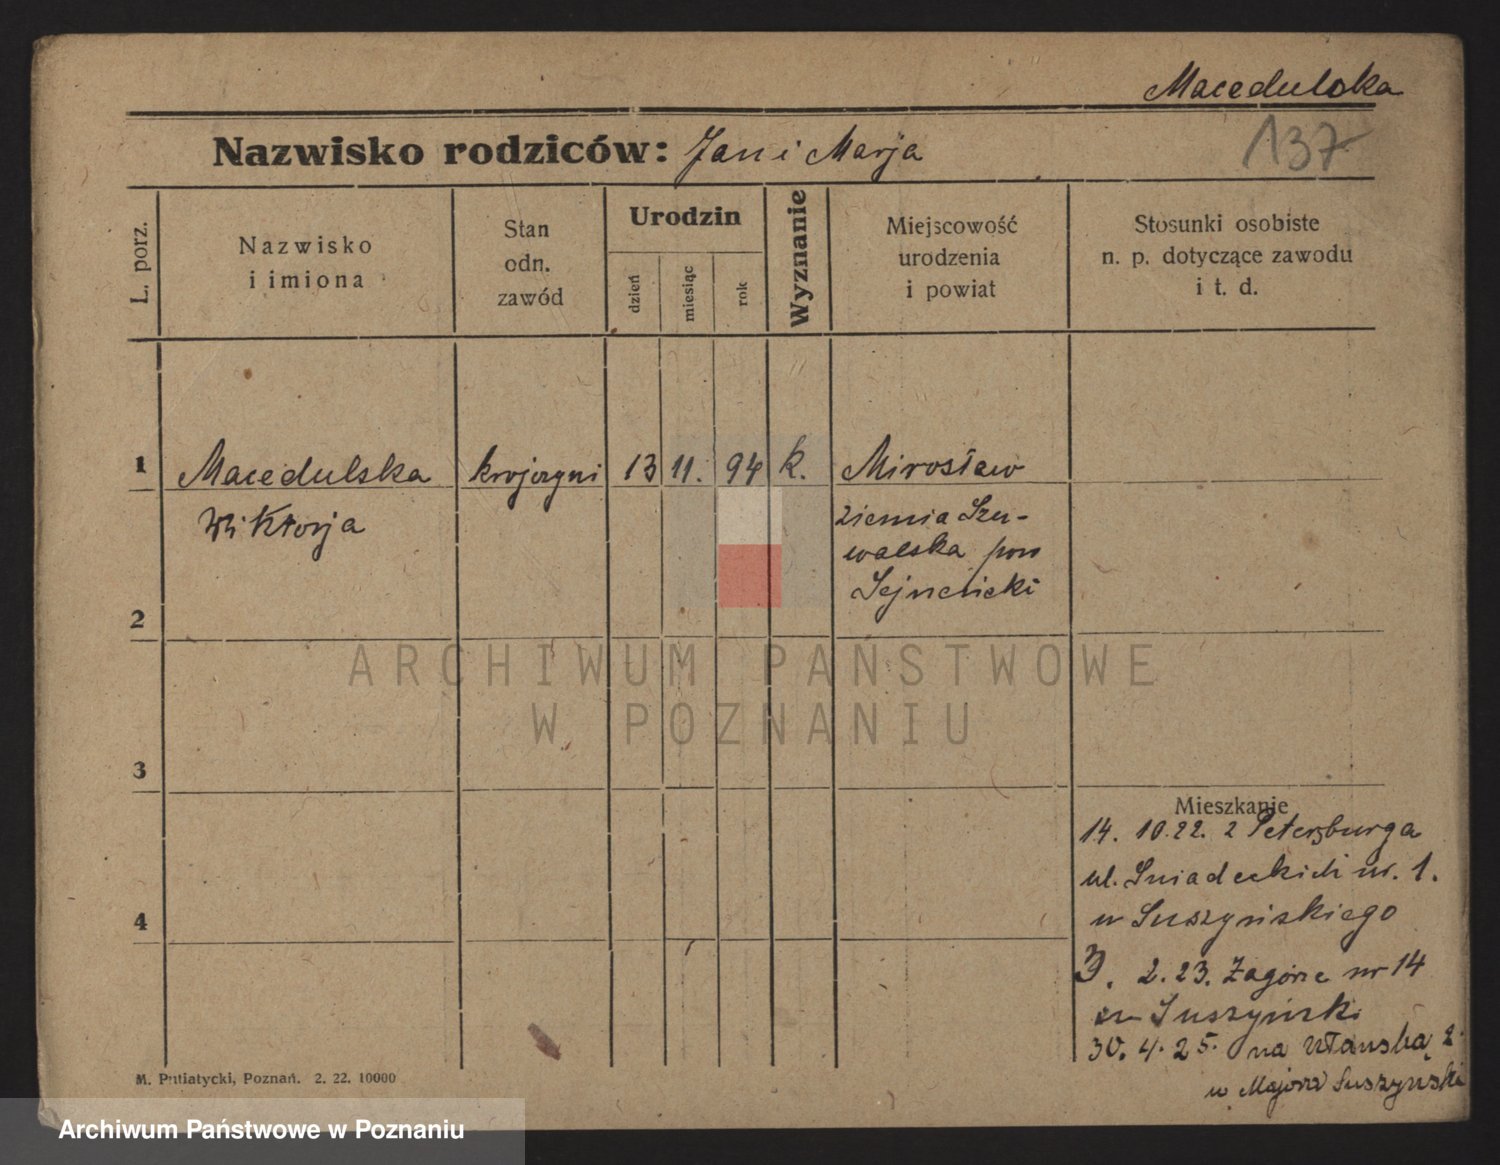 Macedulska
Nazwisko rodziców: Jan i Marja
137
L. porz.
Nazwisko
i imiona
Stan
odn.
zawód
Urodzin
dzień
miesiąc
rok
Wyznanie
Miejscowość
urodzenia
i powiat
Stosunki osobiste
n. p. dotyczące zawodu
i t. d.
1 Macedulska krojczyni 13 11. 94 k. Mirosław
Wiktorja ziemia Szu-
walska pow
2 Sejneński
ARCHIWUM PAŃSTWOWE
W POZNANIU
3
Mieszkanie
14. 10.22. z Petersburga
ul. Śniadeckich nr. 1.
4 w Suszyńskiego
3. 2.23. Zagórze nr 14
Suszyński
30. 4. 25. na Ułańską 2.
w Majora Suszyński
M. Putiatycki, Poznań. 2. 22. 10000
Archiwum Państwowe w Poznaniu